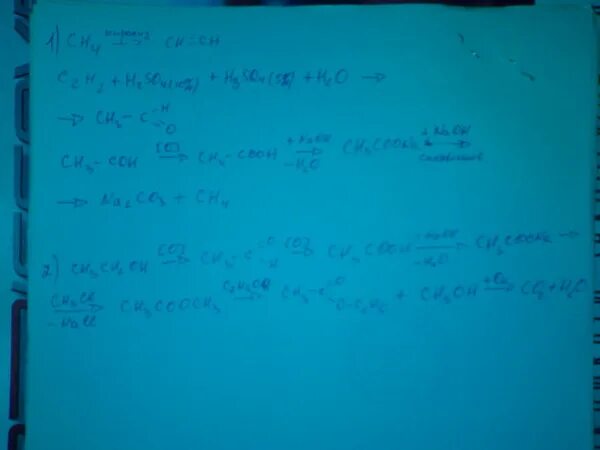 1) CH4 пиролиз→ CH≡CH
C2H2 + H2SO4(10%) + H2SO4(5%) + H2O →
→ CH3-C H O
CH3-COH [O]→ CH3-COOH +NaOH→ -H2O CH3COONa +NaOH→ сплавление
→ Na2CO3 + CH4
2) CH3CH2OH [O]→ CH3-C O H [O]→ CH3COOH +NaOH→ -H2O CH3COONa →
CH3Cl→ -NaCl CH3COOCH3 C2H5OH→ CH3-C O O-C2H5 + CH3OH +O2→ CO2+H2O